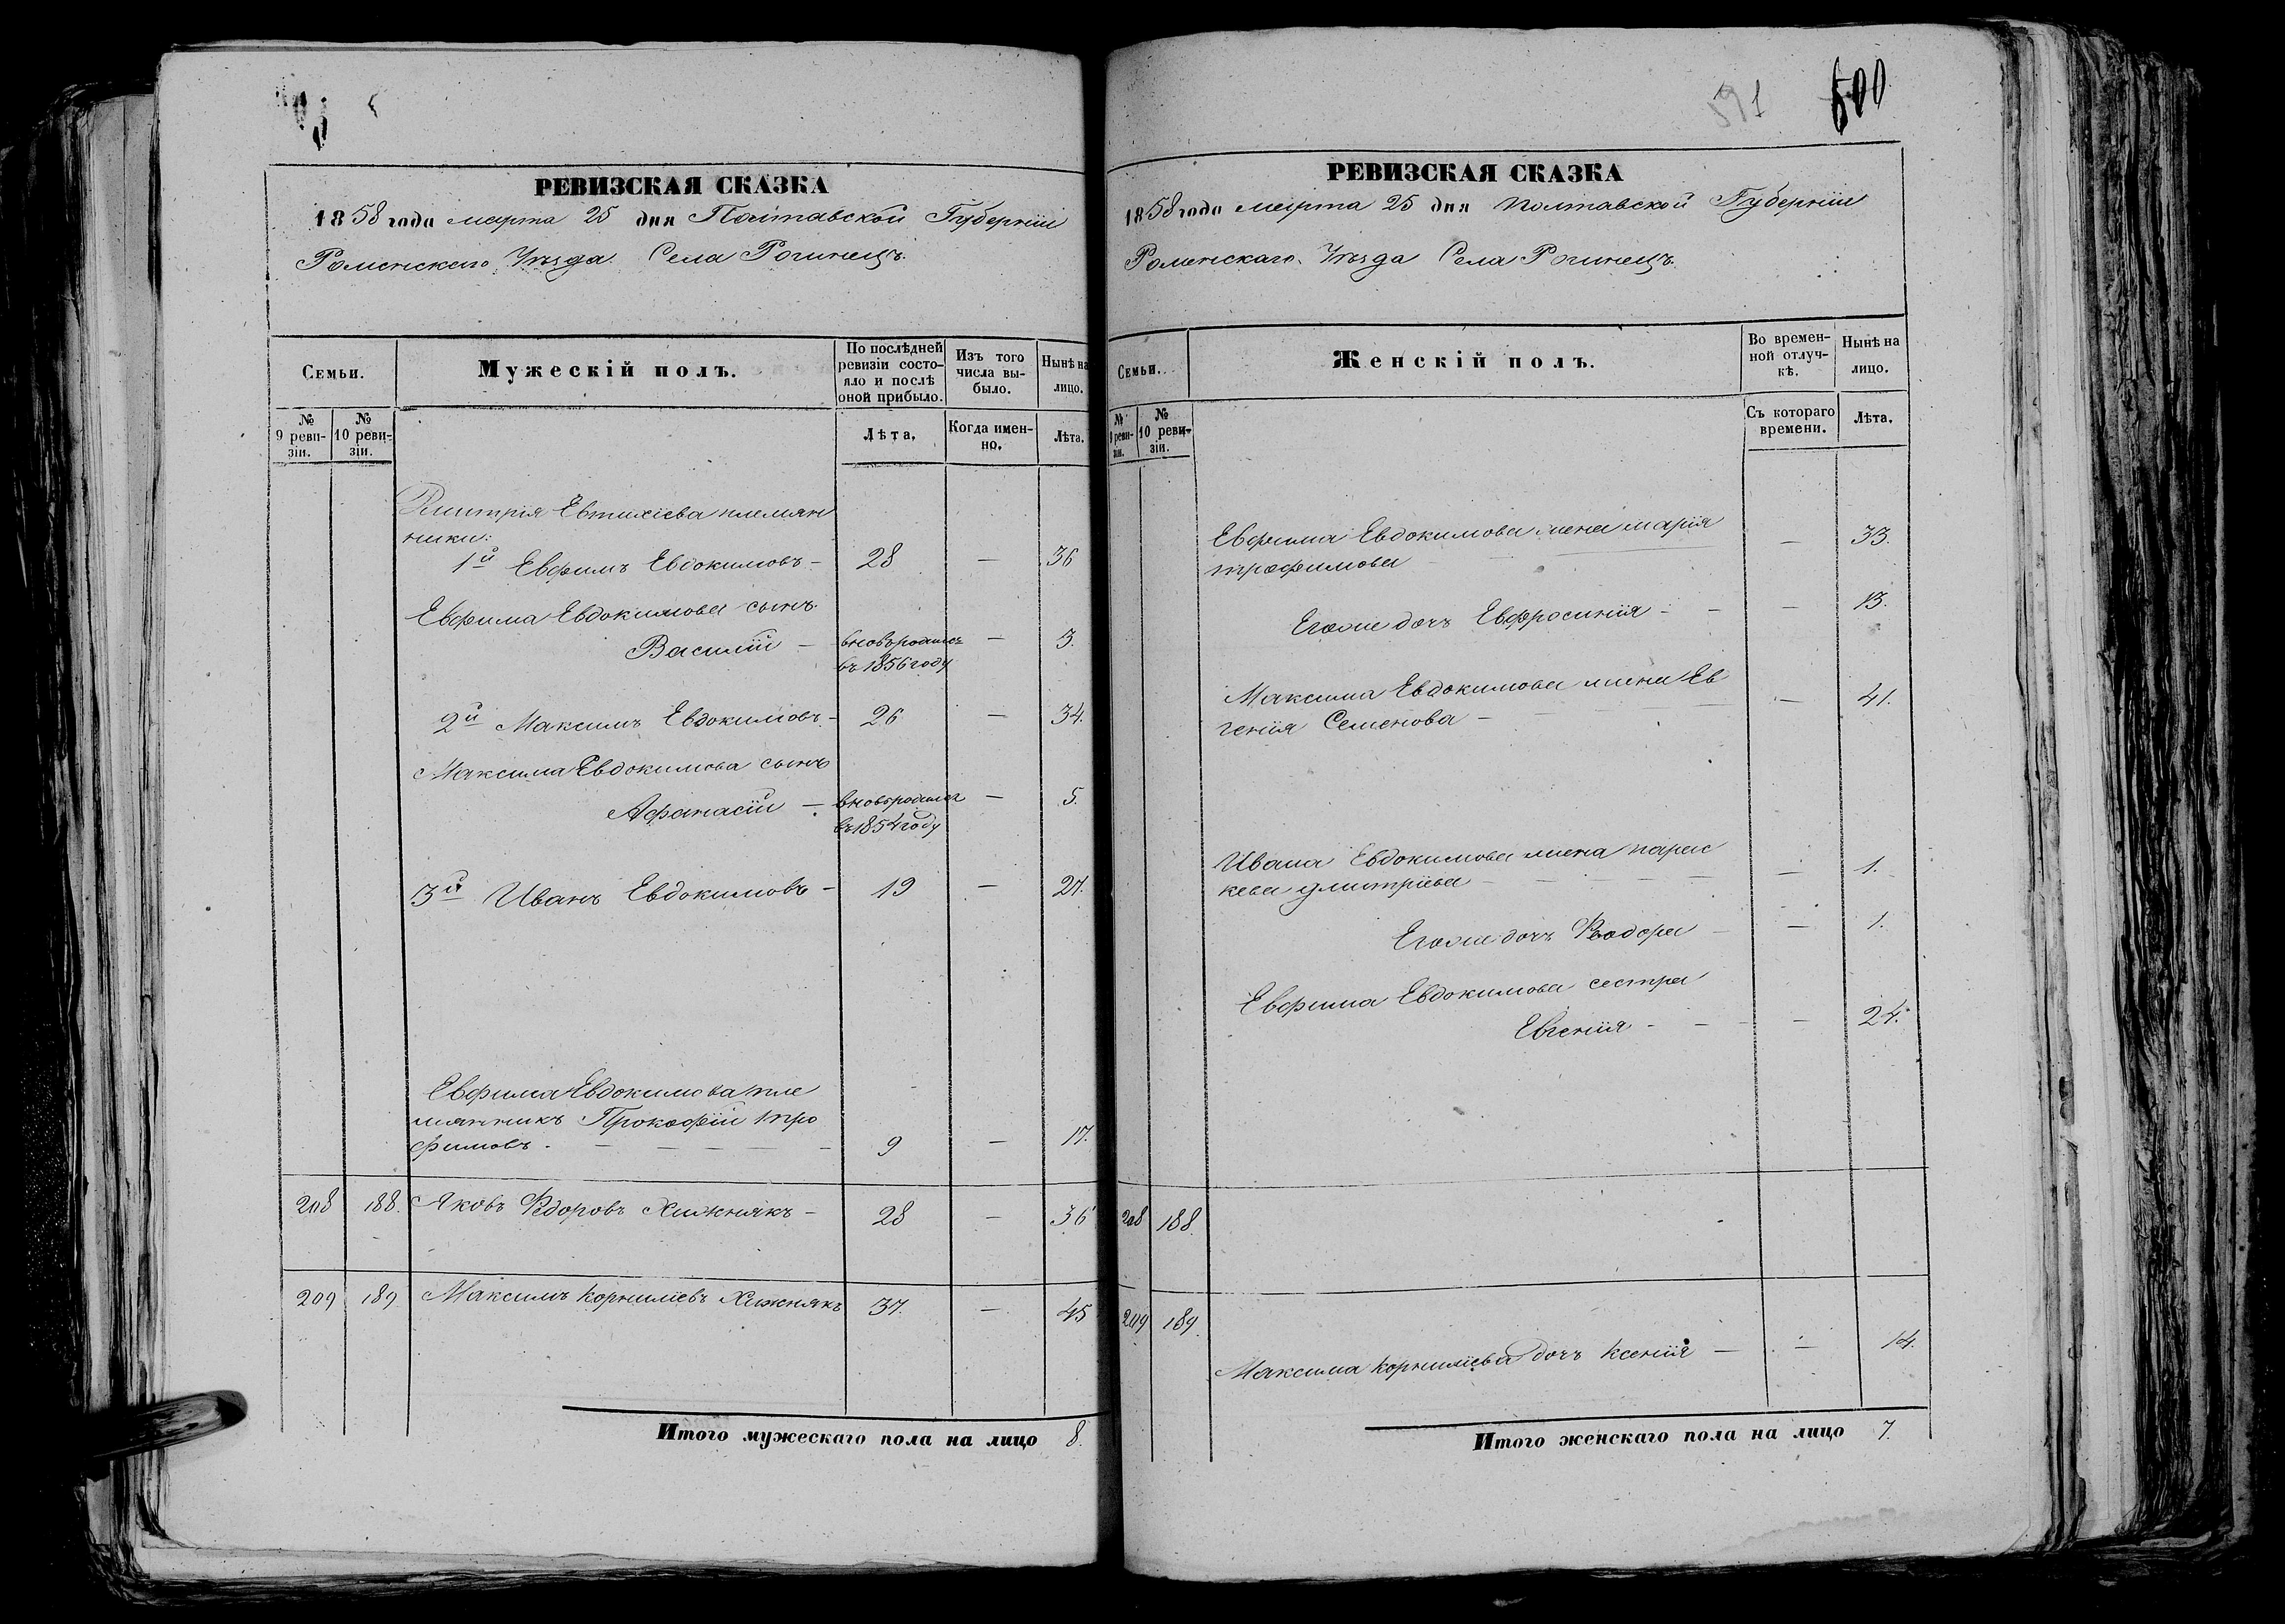 РЕВИЗСКАЯ СКАЗКА
1858 года марта 25 дня Полтавской Губерніи
Роменскаго Уѣзда Села Рогинецъ.
Семьи.
Мужескій полъ.
По послѣдней
ревизіи состо-
яло и послѣ
оной прибыло.
Изъ того
числа вы-
было.
Нынѣ на
лицо.
№
9 реви-
зіи.
№
10 реви-
зіи.
Лѣта.
Когда имен-
но.
Лѣта.
Дмитрія Евтихіева племян
ники:
1й Евфимъ Евдокимовъ — 28 — 36
Евфима Евдокимова сынъ
Василій — вновьродился — 3.
въ 1856 году
2й Максимъ Евдокимовъ — 26 — 34.
Максима Евдокимова сынъ
Афанасій — вновьродился — 5.
въ 1854 году
3й Иванъ Евдокимовъ — 19 — 27.
Евфима Евдокимова пле
мянникъ Прокофій Тро
фимовъ — 9 — 17.
208 188. Яковъ Федоровъ Хижнякъ — 28 — 36
209 189 Максимъ Корниліевъ Хижнякъ 37. — 45
Итого мужескаго пола на лицо 8.
591 600
РЕВИЗСКАЯ СКАЗКА
1858 года марта 25 дня Полтавской Губерніи
Роменскаго Уѣзда Села Рогинецъ.
Семьи.
Женскій полъ.
Во времен-
ной отлуч-
кѣ.
Нынѣ на
лицо.
№
9 реви-
зіи.
№
10 реви-
зіи.
Съ котораго
времени.
Лѣта.
Евфима Евдокимова жена марія
трофимова — — 33.
Егоже дочь Евфросинія — — — 13.
Максима Евдокимова жена Ев
генія Семенова — — 41.
Ивана Евдокимова жена парас
кева дмитріева — — 1.
Егоже дочь Феодора — — 1.
Евфима Евдокимова сестра
Евгенія — — — 24.
208 188.
209 189.
Максима Корниліева дочь Ксенія — — 14.
Итого женскаго пола на лицо 7.